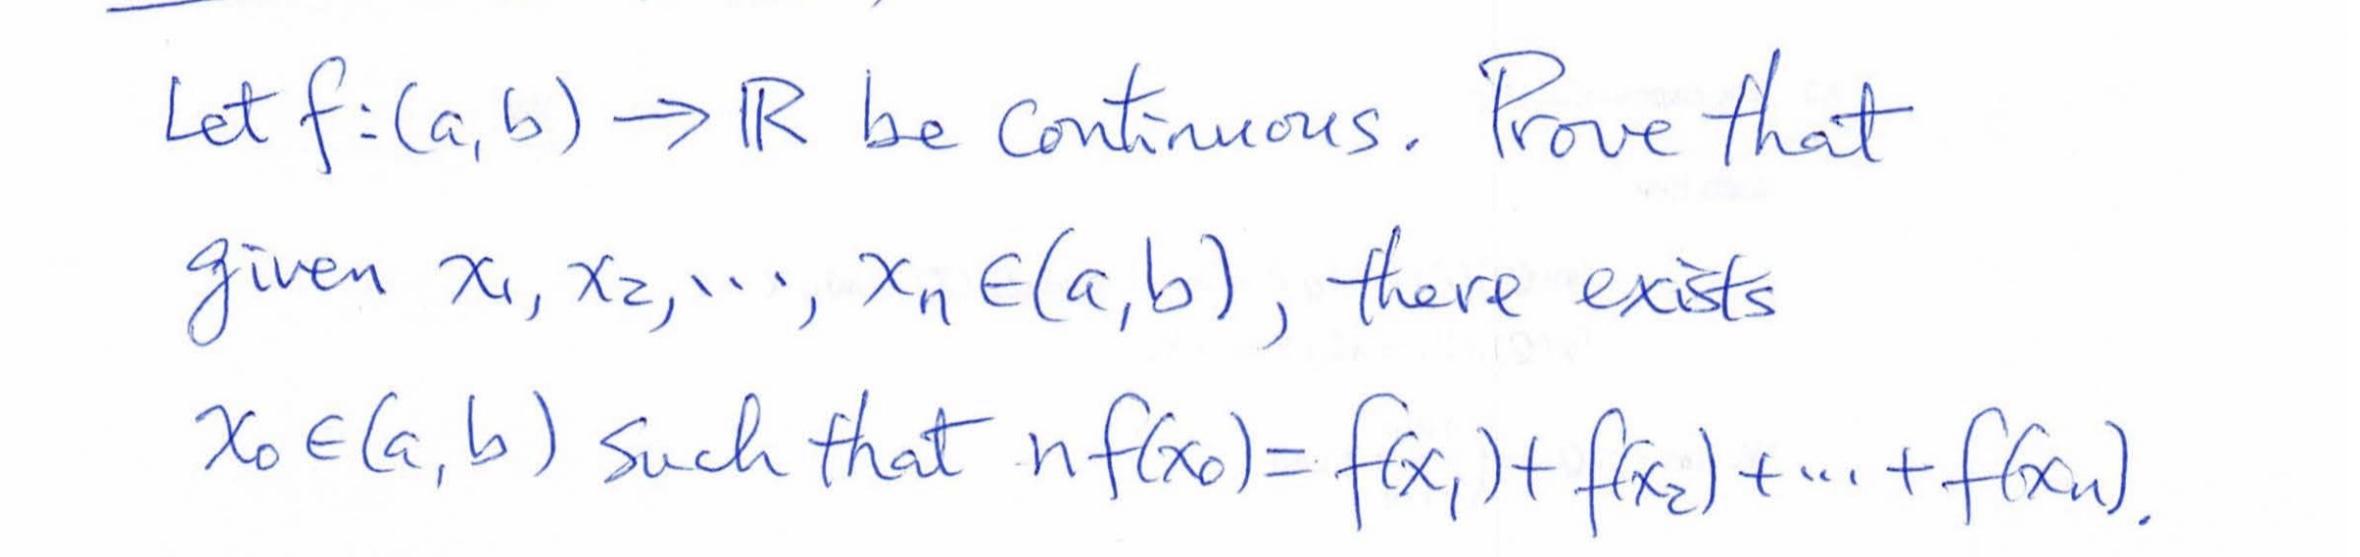 Let f:(a,b) → ℝ be continuous. Prove that
given x₁, x₂, ..., xₙ ∈(a,b), there exists
x₀ ∈(a,b) such that n f(x₀)= f(x₁)+ f(x₂)+...+f(xₙ).